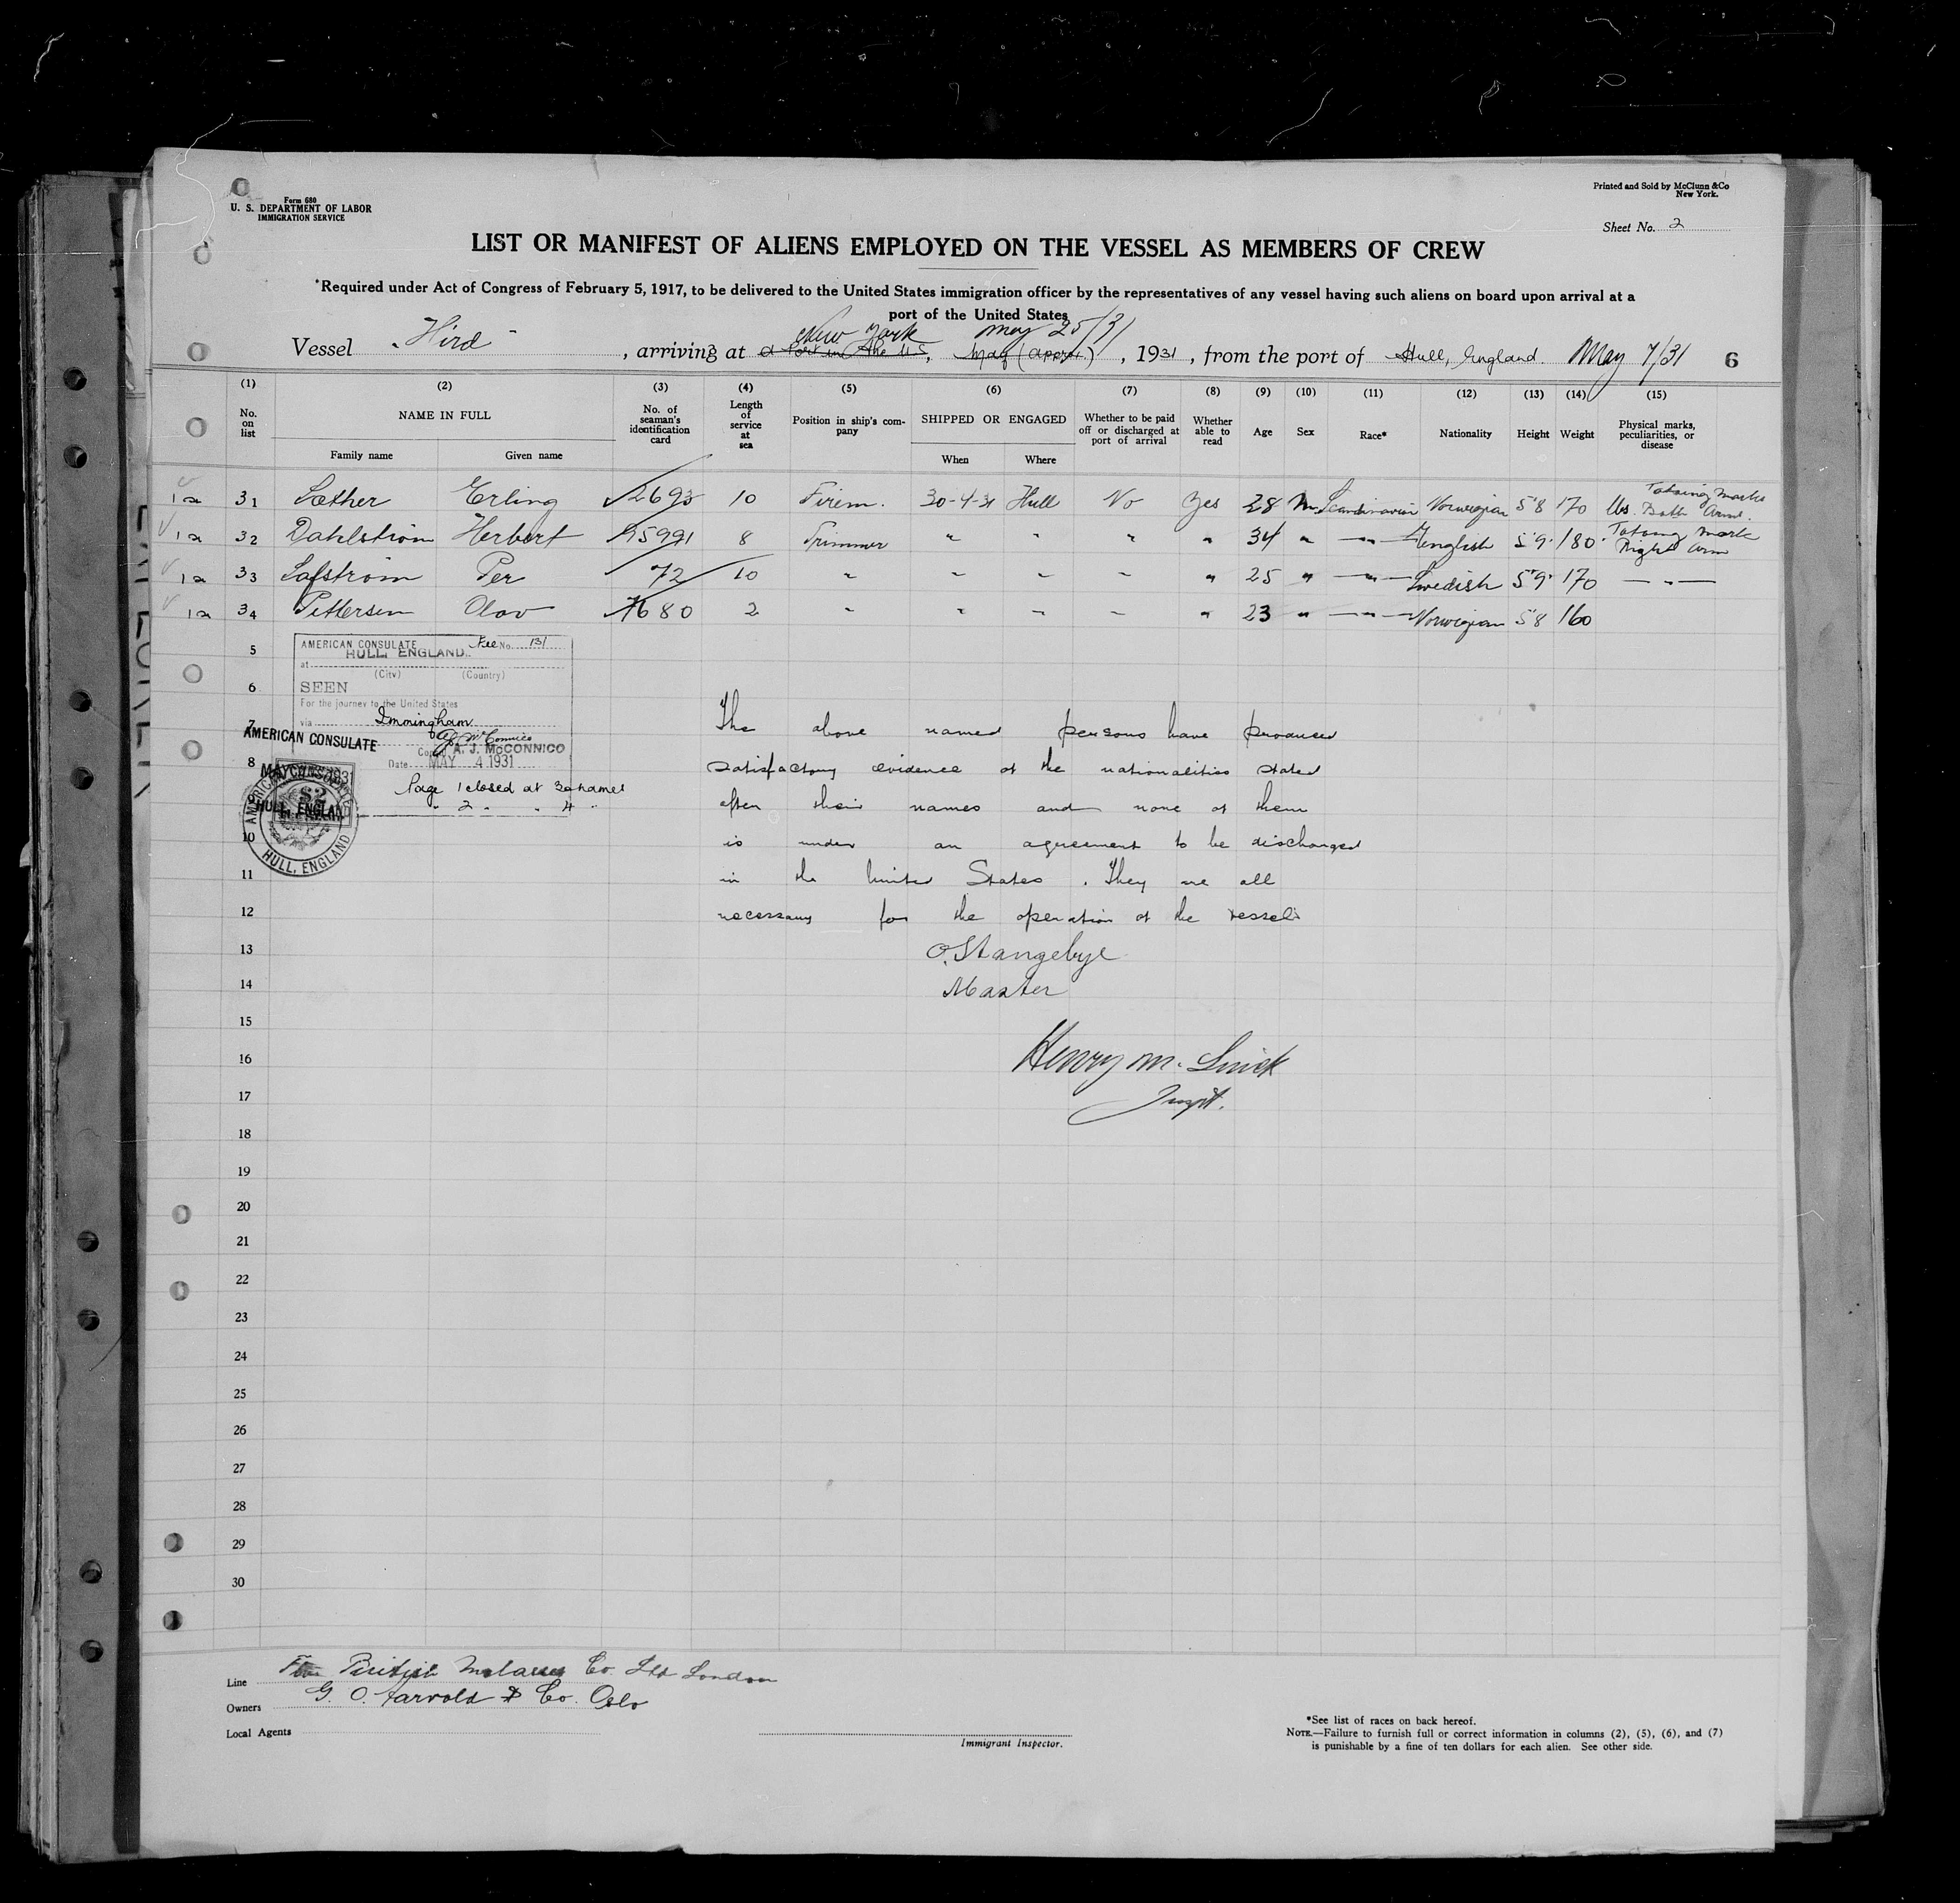 Form 680
U. S. DEPARTMENT OF LABOR
IMMIGRATION SERVICE
Printed and Sold by McClunn & Co
New York.
Sheet No. 2
LIST OR MANIFEST OF ALIENS EMPLOYED ON THE VESSEL AS MEMBERS OF CREW
*Required under Act of Congress of February 5, 1917, to be delivered to the United States immigration officer by the representatives of any vessel having such aliens on board upon arrival at a
port of the United States
New York May 25/31
Vessel "Hird" , arriving at a Port in the U S, May (approx.) , 1931 , from the port of Hull, England. May 7/31 6
(1) (2) (3) (4) (5) (6) (7) (8) (9) (10) (11) (12) (13) (14) (15)
No. on list NAME IN FULL No. of seaman's identification card Length of service at sea Position in ship's company SHIPPED OR ENGAGED Whether to be paid off or discharged at port of arrival Whether able to read Age Sex Race* Nationality Height Weight Physical marks, peculiarities, or disease
Family name Given name When Where
1a 31 Sæther Erling 2693 10 Firem. 30-4-31 Hull No Yes 28 M Scandinavian Norwegian 5'8 170 lbs. Tatooing marks Both Arms.
1a 32 Dahlström Herbert 8 Trimmer " " " " 34 " —"— English 5'9" 180 Tatooing mark Right Arm
1a 33 Löfström Per 72 10 " " " " " 25 " —"— Swedish 5'9" 170 —"—
1a 34 Pettersen Olav 7680 2 " " " " " 23 " —"— Norwegian 5'8 160
5
AMERICAN CONSULATE Fee No. 131
HULL, ENGLAND.
at
(City) (Country)
6
SEEN
For the journey to the United States
7
via Immingham
AMERICAN CONSULATE
A. J. McCONNICO
8
Date MAY 4 1931
Page 1 closed at 30 names
9
" 2 " " 4 "
HULL, ENGLAND
10
HULL, ENGLAND
The above named persons have produced
satisfactory evidence of the nationalities stated
after their names and none of them
is under an agreement to be discharged
in the United States. They are all
necessary for the operation of the vessel.
O. Stangebye
Master
Henry M. Smick
Inspt.
11
12
13
14
15
16
17
18
19
20
21
22
23
24
25
26
27
28
29
30
Line The British Molasses Co. Ltd London
Owners G. O. Aarvold & Co. Oslo
Local Agents
Immigrant Inspector.
*See list of races on back hereof.
NOTE.—Failure to furnish full or correct information in columns (2), (5), (6), and (7)
is punishable by a fine of ten dollars for each alien. See other side.